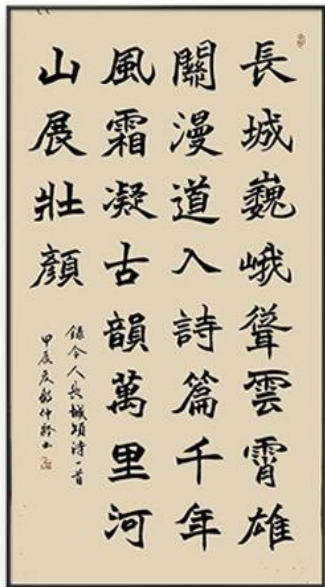 長城巍峨聳雲霄雄
關漫道入詩篇千年
風霜凝古韻萬里河
山展壯顏
錄今人長城頌诗一首
甲辰夏